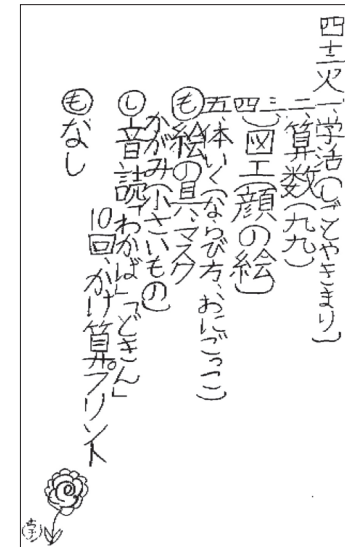 四十三火一、学活(しごとやきまり)
二、算数(九九)
三、
四、図工(顔の絵)
五、体いく(ならび方、おにごっこ)
も絵の具、マスク
かがみ(小さいもの)
し音読「わかば」「どきん」
10回、かけ算プリント
もなし